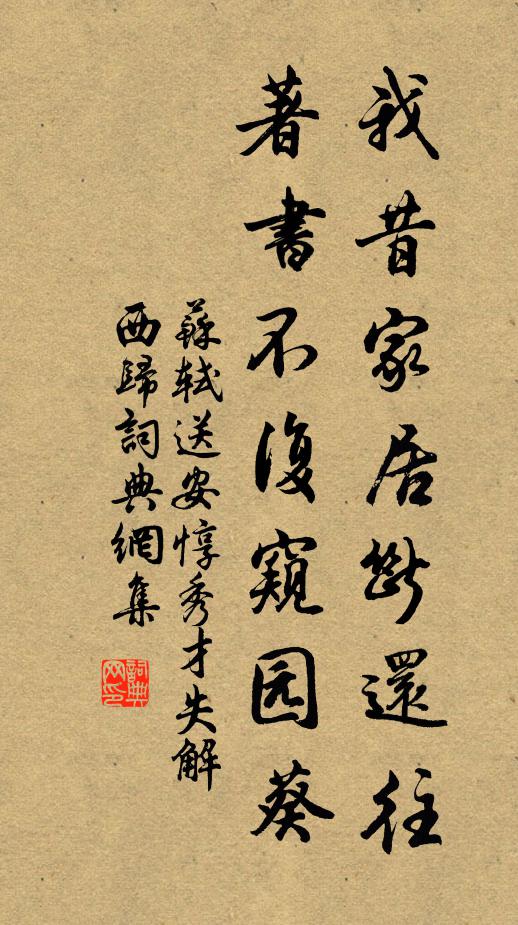 我昔家居断還往
著書不復窺园葵
蘇軾送安惇秀才失解
西歸詞典網集
詞典网印